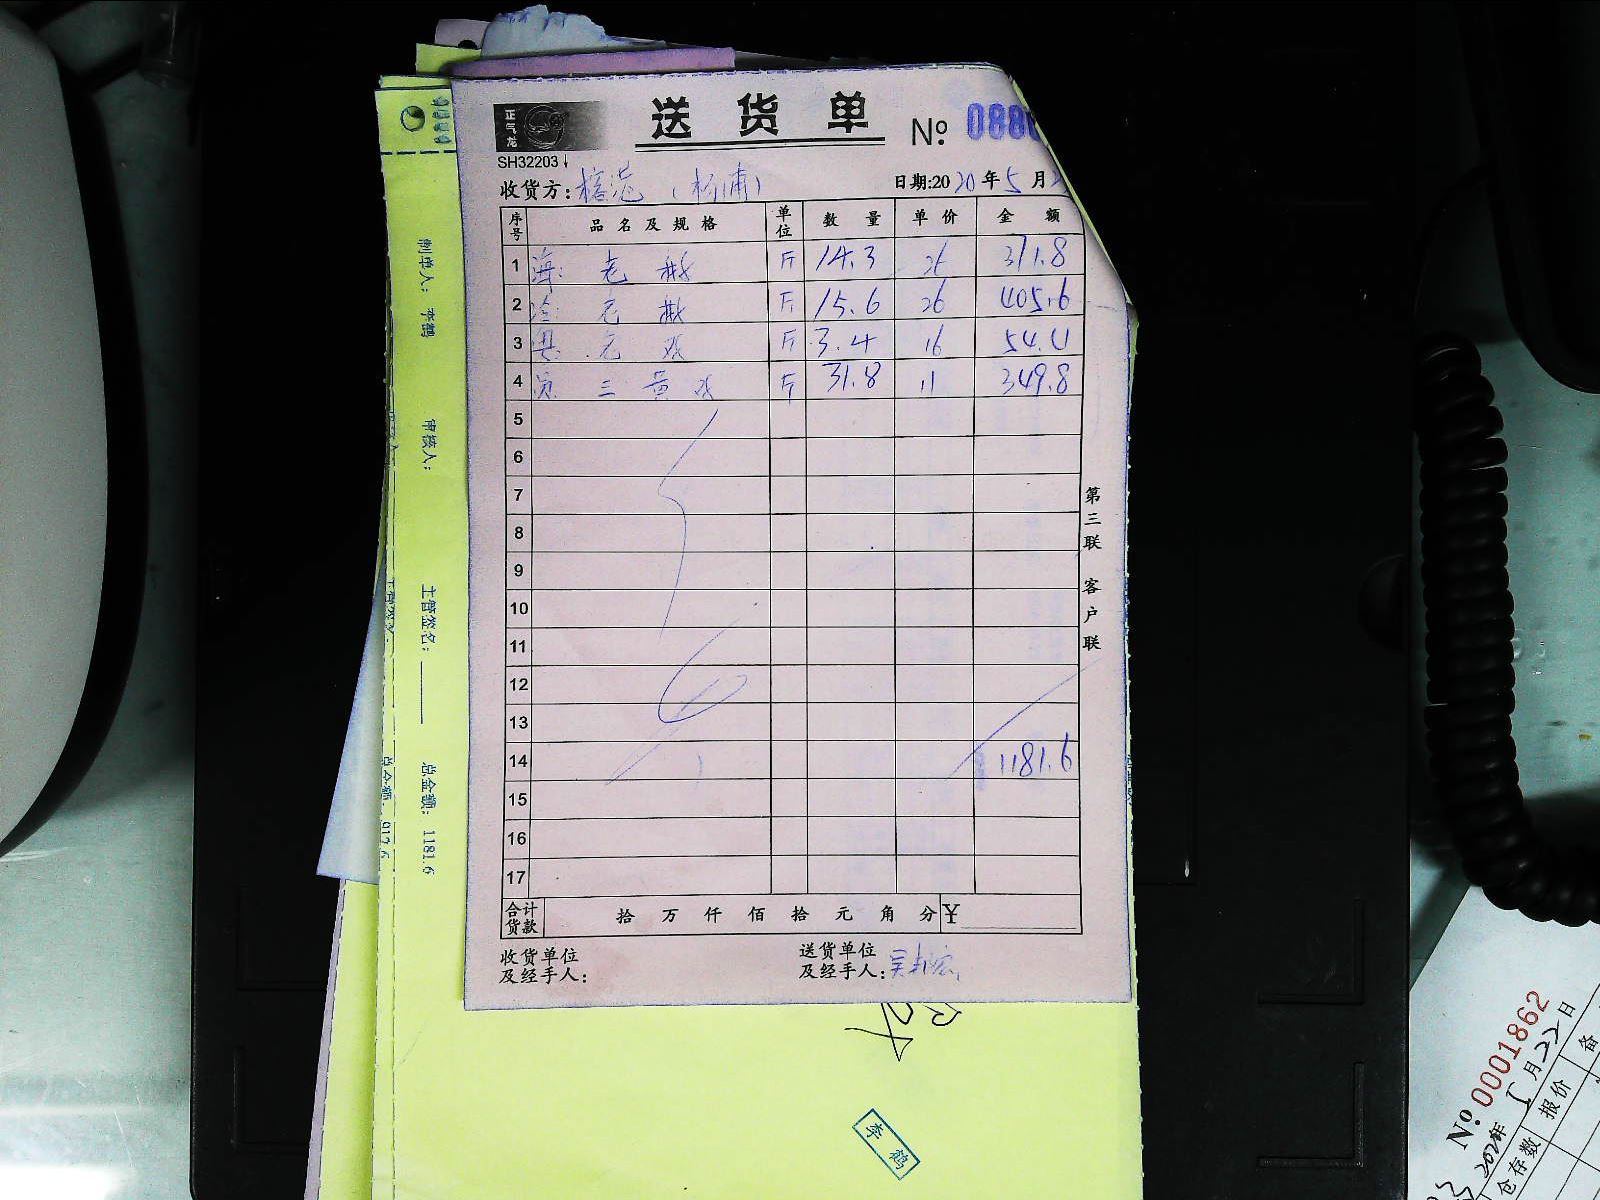 正气龙
送货单
№ 088
SH32203
收货方: (杨浦)
日期:2020年5月2
序号 品名及规格 单位 数量 单价 金额
1 海 老 斤 14.3 26 371.8
2 老 斤 15.6 26 405.6
3 斤 3.4 16 54.4
4 三黄 斤 31.8 11 349.8
5
6
7
8
9
10
11
12
13
14 1181.6
15
16
17
合计货款 拾 万 仟 佰 拾 元 角 分 ¥
收货单位
及经手人:
送货单位
及经手人: 吴
第三联 客户联
制单人: 李鹤
审核人:
主管签名:
总金额: 1181.6
总金额: 917.6
李鹤
№ 0001862
月22日
报价 备
仓存数